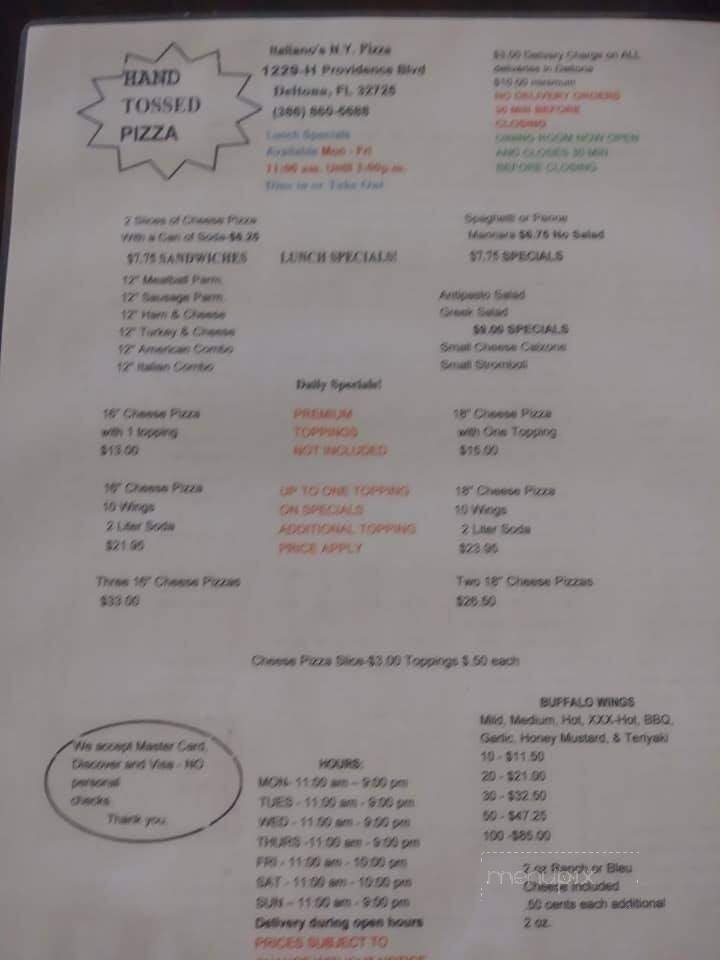 HAND
TOSSED
PIZZA
Italiano's N.Y. Pizza
1229-H Providence Blvd
Deltona, FL 32725
(386) 860-
Lunch Specials
Available Mon - Fri
11:00 am. Until 3:00p.m.
Dine in or Take Out
Delivery Charge on ALL
deliveries in Deltona
minimum
NO DELIVERY ORDERS
30 MIN BEFORE
CLOSING
DINING ROOM NOW OPEN
AND CLOSES 30 MIN
BEFORE CLOSING
2 Slices of Cheese Pizza
With a Can of Soda-$6.25
Spaghetti or Penne
Marinara $6.75 No Salad
$7.75 SANDWICHES
LUNCH SPECIALS!
$7.75 SPECIALS
12" Meatball Parm
12" Sausage Parm
12" Ham & Cheese
12" Turkey & Cheese
12" American Combo
12" Italian Combo
Antipasto Salad
Greek Salad
$9.00 SPECIALS
Small Cheese Calzone
Small Stromboli
Daily Specials!
16" Cheese Pizza
with 1 topping
$13.00
PREMIUM
TOPPINGS
NOT INCLUDED
18" Cheese Pizza
with One Topping
$15.00
16" Cheese Pizza
10 Wings
2 Liter Soda
$21.95
UP TO ONE TOPPING
ON SPECIALS
ADDITIONAL TOPPING
PRICE APPLY
18" Cheese Pizza
10 Wings
2 Liter Soda
$23.95
Three 16" Cheese Pizzas
$33.00
Two 18" Cheese Pizzas
$26.50
Cheese Pizza Slice-$3.00 Toppings $.50 each
We accept Master Card,
Discover and Visa - NO
personal
checks
Thank you.
HOURS:
MON- 11:00 am – 9:00 pm
TUES - 11:00 am - 9:00 pm
WED - 11:00 am - 9:00 pm
THURS -11:00 am - 9:00 pm
FRI - 11:00 am - 10:00 pm
SAT - 11:00 am - 10:00 pm
SUN – 11:00 am - 9:00 pm
Delivery during open hours
PRICES SUBJECT TO
CHANGE WITHOUT NOTICE
BUFFALO WINGS
Mild, Medium, Hot, XXX-Hot, BBQ,
Garlic, Honey Mustard, & Teriyaki
10 - $11.50
20 - $21.00
30 - $32.50
50 - $47.25
100 -$85.00
2 oz Ranch or Bleu
Cheese included
.50 cents each additional
2 oz.
menupix